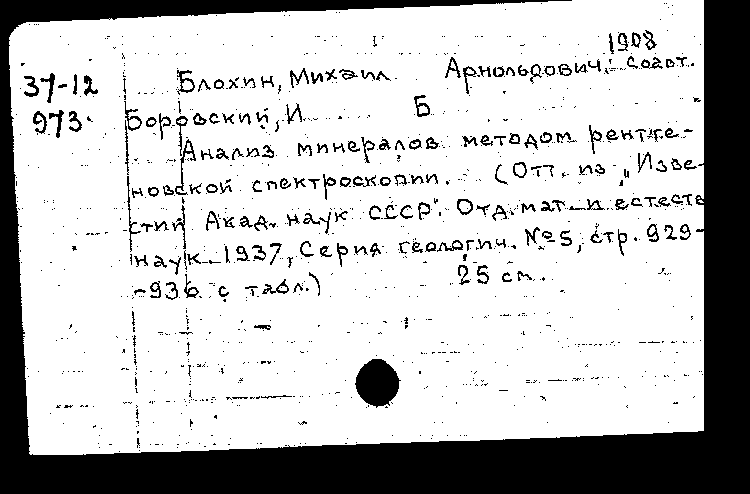 1908
37-12 Блохин, Михаил Арнольдович, соавт.
973. Боровский, И Б
Анализ минералов методом рентге-
новской спектроскопии. (Отт. из „Изве-
стий Акад. наук СССР". Отд. мат. и естеств
наук 1937, Серия геологич. №5, стр. 929-
-936 с табл.) 25 см.